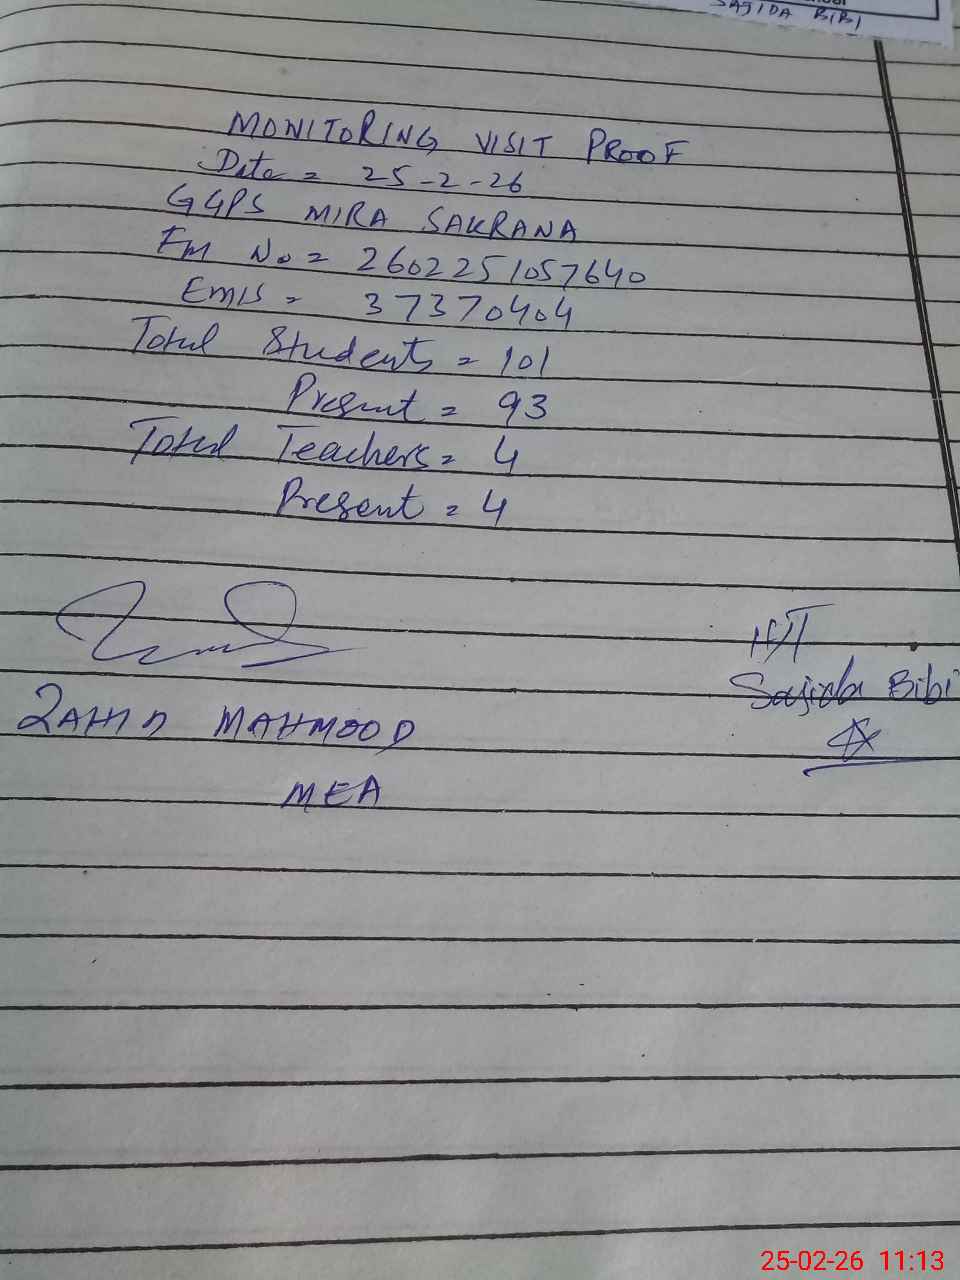 SAJIDA BIBI
MONITORING VISIT PROOF
Date = 25-2-26
GGPS MIRA SAKRANA
FM No = 2602251057640
EMIS = 37370404
Total Students = 101
Present = 93
Total Teachers = 4
Present = 4
H/T
Sajida Bibi
ZAHID MAHMOOD
MEA
25-02-26 11:13